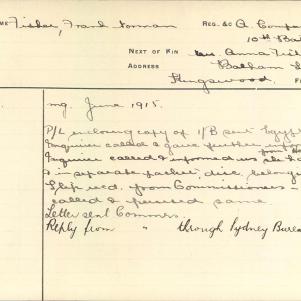 ME Fisher, Frank Norman REG. & C A Comp
10th Ba
NEXT OF KIN Mrs. Anna Fish
ADDRESS Balham S
Kingswood.
mg. June 1915.
P/L enclosing copy of 1/B sent Egyp
Inquirer called & gave further info
Inquirer called & informed us she ha
& in separate packet, disc, belong
Slip recd. from Commissioners
called & perused same
Letter sent Commrs.
Reply from " through Sydney Burea